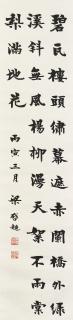 碧瓦樓頭繡幕遮赤闌橋外綠
溪斜無風楊柳漫天絮不雨棠
梨滿地花 丙寅三月 梁啓超